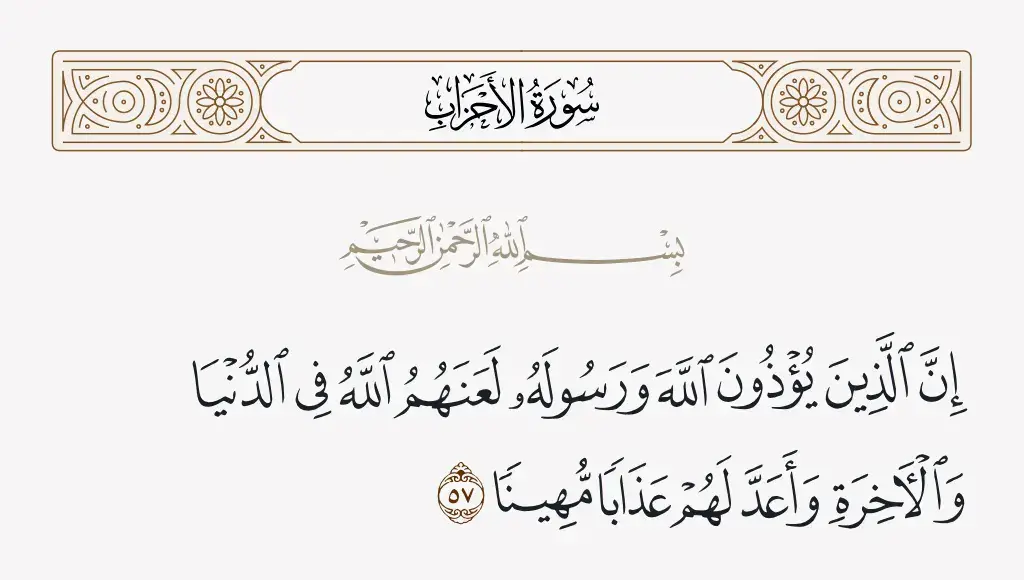 سُورَةُ الأَحْزَابِ
بِسْمِ ٱللَّهِ ٱلرَّحْمَٰنِ ٱلرَّحِيمِ
إِنَّ ٱلَّذِينَ يُؤْذُونَ ٱللَّهَ وَرَسُولَهُۥ لَعَنَهُمُ ٱللَّهُ فِى ٱلدُّنْيَا
وَٱلْـَٔاخِرَةِ وَأَعَدَّ لَهُمْ عَذَابًا مُّهِينًا ٥٧